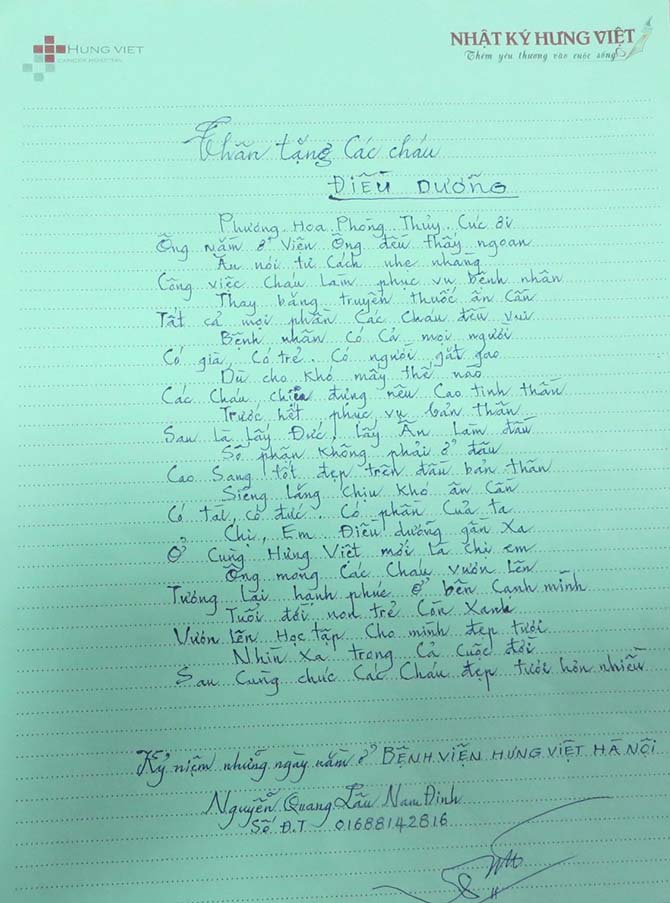 HUNG VIET
CANCER HOSPITAL
NHẬT KÝ HƯNG VIỆT
Thêm yêu thương vào cuộc sống
Thân tặng Các cháu
ĐIỀU DƯỠNG
Phương Hoa Phòng Thủy Cúc ơi
Ông nằm ở Viện Ông đều thấy ngoan
Ăn nói tư cách nhẹ nhàng
Công việc Cháu Làm phục vụ bệnh nhân
Thay băng truyền thuốc ân Cần
Tất cả mọi phần Các Cháu đều vui
Bệnh nhân Có Cả mọi người
Có già, Có trẻ. Có người gắt gao
Dù cho Khó mấy thế nào
Các Cháu chịu đựng nêu Cao tinh thần
Trước hết phục vụ bản thân
Sau Là Lấy Đức, Lấy Ân Làm đầu
Số phận Không phải ở đâu
Cao Sang tốt đẹp trên đầu bản thân
Siêng Lăng Chịu Khó ân Cần
Có tài, có đức. Có phần Của ta
Chị, Em Điều dưỡng gần Xa
Ở Cùng Hưng Việt mới Là chị em
Ông mong Các Cháu Vươn Lên
Tương Lai hạnh phúc Ở bên Cạnh mình
Tuổi đời non trẻ Còn Xanh
Vươn Lên Học Tập Cho mình đẹp tươi
Nhìn Xa trong Cả Cuộc đời
Sau Cùng chúc Các Cháu đẹp tươi hơn nhiều
Kỷ niệm những ngày nằm ở BỆNH VIỆN HƯNG VIỆT HÀ NỘI
Nguyễn Quang Lâu Nam Định
Số Đ.T 01688142816